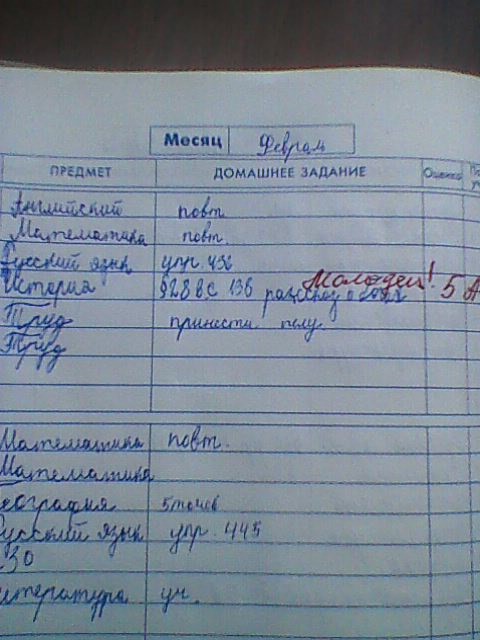 Месяц Февраль
ПРЕДМЕТ ДОМАШНЕЕ ЗАДАНИЕ Оценка
Английский повт
Математика повт.
Русский язык упр. 436
История §28 в.с 136 рассказ о Молодец! 5
Труд принести пилу
Труд
Математика повт.
Математика
еография
Русский язык упр. 445
ИЗО
итература уч.